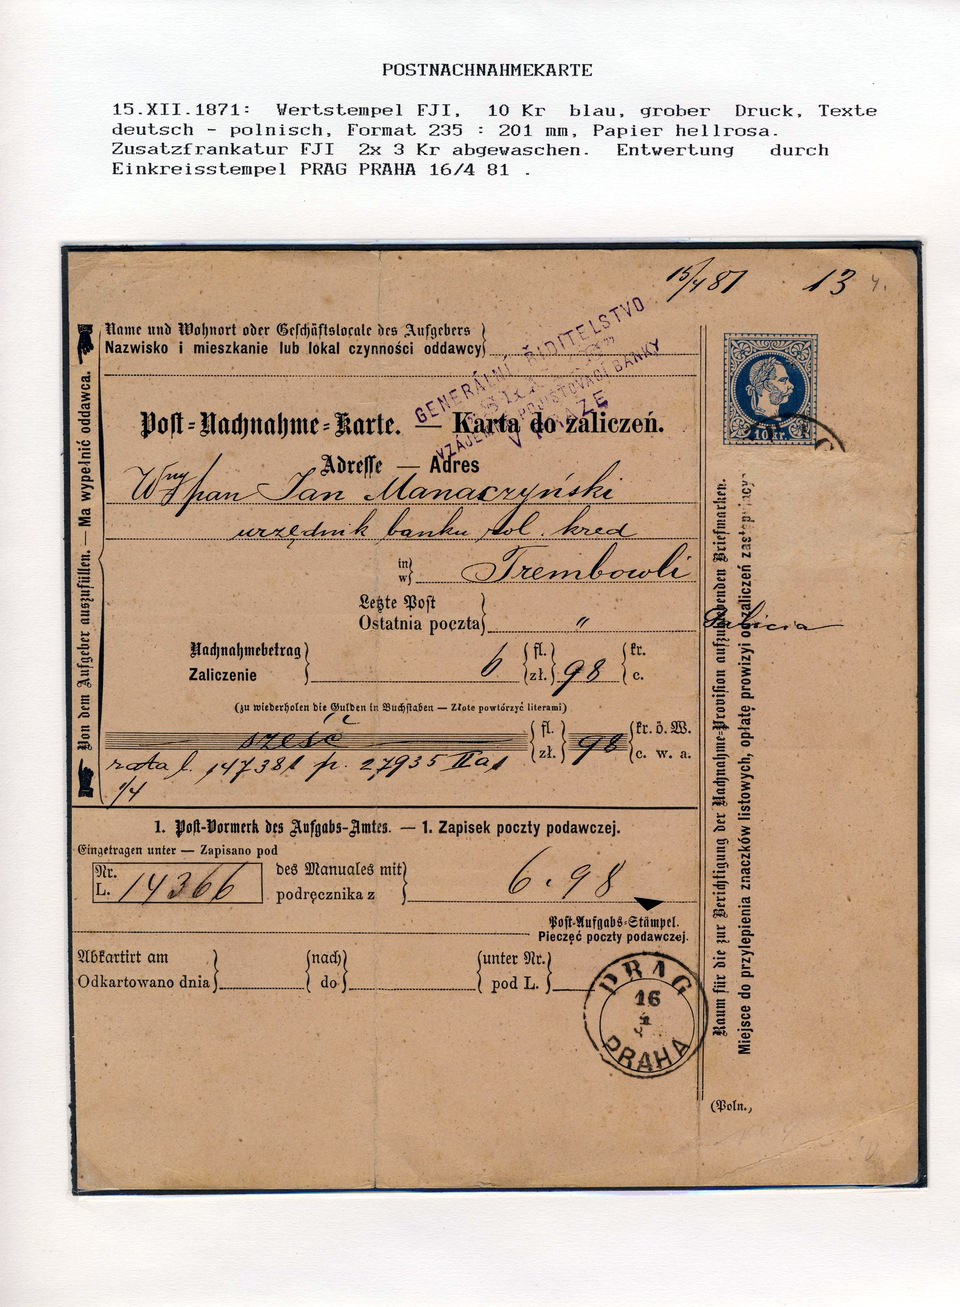 POSTNACHNAHMEKARTE
15.XII.1871: Wertstempel FJI, 10 Kr blau, grober Druck, Texte
deutsch - polnisch, Format 235 : 201 mm, Papier hellrosa.
Zusatzfrankatur FJI 2x 3 Kr abgewaschen. Entwertung durch
Einkreisstempel PRAG PRAHA 16/4 81 .
15/4 81 13
Name und Wohnort oder Geschäftslocale des Aufgebers
Nazwisko i mieszkanie lub lokal czynności oddawcy
GENERÁLNÍ ŘIDITELSTVO
BANKY
V PRAZE
10 kr.
Post-Nachnahme-Karte. — Karta do zaliczeń.
Adresse — Adres
Wny pan Jan Manaczyński
urzędnik banku rol. kred
in
w Trembowli
Letzte Post
Ostatnia poczta "
Galicia
Nachnahmebetrag fl. kr.
Zaliczenie 6 zł. 98 c.
(zu wiederholen die Gulden in Buchstaben — Złote powtórzyć literami)
sześć fl. 98 kr. ö. W.
zł. c. w. a.
rata l. 147381 p. 27935 IIa
1/4
Von dem Aufgeber auszufüllen. — Ma wypełnić oddawca.
1. Post-Vormerk des Aufgabs-Amtes. — 1. Zapisek poczty podawczej.
Eingetragen unter — Zapisano pod
Nr. des Manuales mit
L. 14366 podręcznika z 6.98
Post-Aufgabs-Stämpel.
Pieczęć poczty podawczej.
Abkartirt am nach unter Nr.
Odkartowano dnia do pod L.
PRAG
16
4
PRAHA
Raum für die zur Berichtigung der Nachnahme-Provision aufzuklebenden Briefmarken.
Miejsce do przylepienia znaczków listowych, opłatę prowizyi od zaliczeń
(Poln.)